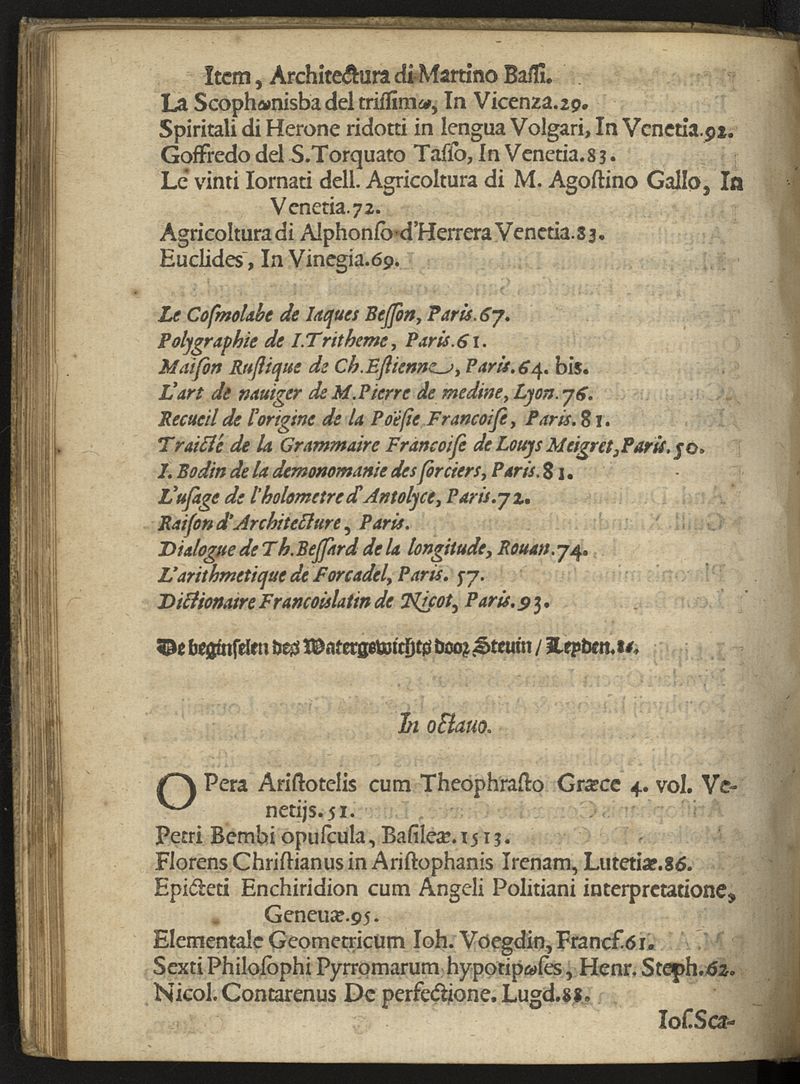 Item, Architectura di Martino Baſſi.
La Scophωnisba del triſſimω, In Vicenza.29.
Spiritali di Herone ridotti in lengua Volgari, In Venetia.92.
Goffredo del S.Torquato Taſſo, In Venetia.83.
Le vinti Iornati dell. Agricoltura di M. Agoſtino Gallo, In
Venetia.72.
Agricoltura di Alphonſo d'Herrera Venetia.83.
Euclides, In Vinegia.69.
Le Coſmolabe de Iaques Beſſon, Paris.67.
Polygraphie de I.Tritheme, Paris.61.
Maiſon Ruſtique de Ch.Eſtienne, Paris.64. bis.
L'art de nauiger de M.Pierre de medine, Lyon.76.
Recueil de l'origine de la Poëſie Francoiſe, Paris.81.
Traicté de la Grammaire Francoiſe de Louys Meigret, Paris.50.
I. Bodin de la demonomanie des ſorciers, Paris.81.
L'uſage de l'holometre d'Antolyce, Paris.72.
Raiſon d'Architecture, Paris.
Dialogue de Th.Beſſard de la longitude, Rouan.74.
L'arithmetique de Forcadel, Paris. 57.
Dictionaire Francoislatin de Nicot, Paris.93.
De beginſelen des Watergewichts door Steuin / Leyden.86.
In octauo.
OPera Ariſtotelis cum Theophraſto Græce 4. vol. Ve-
netijs.51.
Petri Bembi opuſcula, Baſileæ.1513.
Florens Chriſtianus in Ariſtophanis Irenam, Lutetiæ.86.
Epicteti Enchiridion cum Angeli Politiani interpretatione,
Geneuæ.95.
Elementale Geometricum Ioh. Voegdin, Francf.61.
Sexti Philoſophi Pyrromarum hypotipωſes, Henr. Steph.62.
Nicol. Contarenus De perfectione. Lugd.88.
Ioſ.Sca-